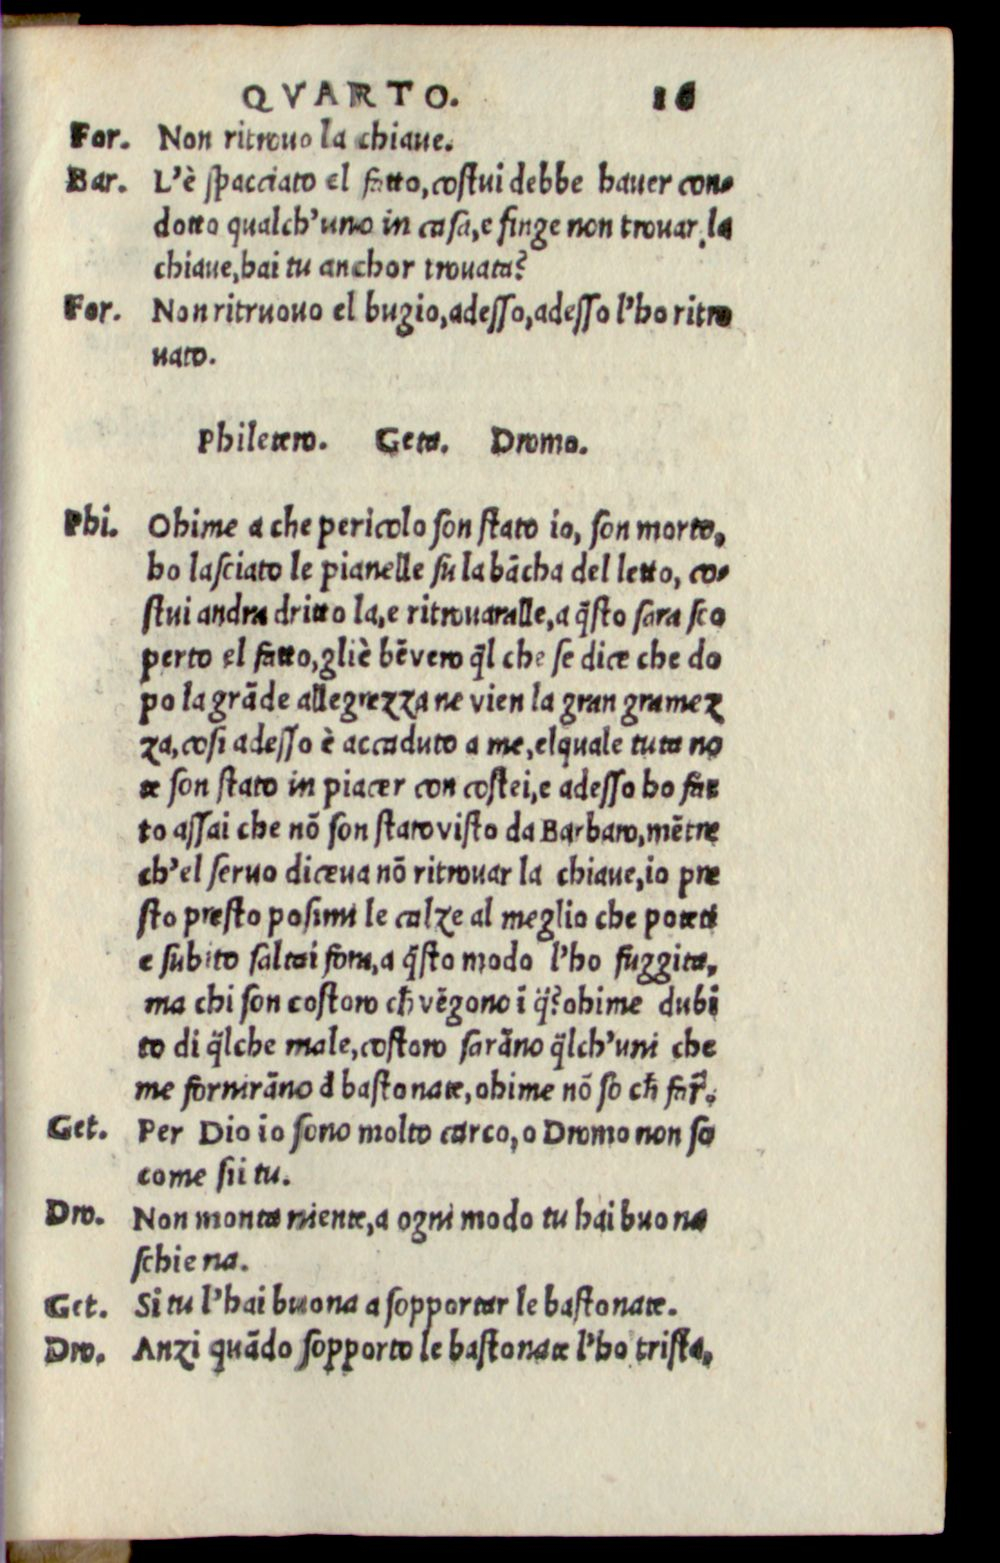 QVARTO. 16
For. Non ritrouo la chiaue.
Bar. L'è ſpacciato el fatto, coſtui debbe hauer con-
dotto qualch'uno in caſa, e finge non trouar la
chiaue, hai tu anchor trouata?
For. Non ritruouo el bugio, adeſſo, adeſſo l'ho ritro
uato.
Philetero. Geta. Dromo.
Phi. Ohime a che pericolo ſon ſtato io, ſon morto,
ho laſciato le pianelle ſu la bācha del letto, co-
ſtui andra dritto la, e ritrouaralle, a q̃ſto ſara ſco
perto el fatto, gliè bẽ vero q̃l che ſe dice che do
po la grāde allegrezza ne vien la gran gramez
za, coſi adeſſo è accaduto a me, elquale tuta no
te ſon ſtato in piacer con coſtei, e adeſſo ho fat
to aſſai che nō ſon ſtato viſto da Barbaro, mẽtre
ch'el ſeruo diceua nō ritrouar la chiaue, io pre
ſto preſto poſimi le calze al meglio che poteti
e ſubito ſaltai fora, a q̃ſto modo l'ho fuggita,
ma chi ſon coſtoro ch̃ vẽgono ĩ q̃? ohime dubi
to di q̃lche male, coſtoro ſarāno q̃lch'uni che
me fornirāno d baſtonate, ohime nō ſo ch̃ far̃.
Get. Per Dio io ſono molto carco, o Dromo non ſo
come ſii tu.
Dro. Non monta niente, a ogni modo tu hai buona
ſchiena.
Get. Si tu l'hai buona a ſopportar le baſtonate.
Dro. Anzi quādo ſopporto le baſtonate l'ho triſta,